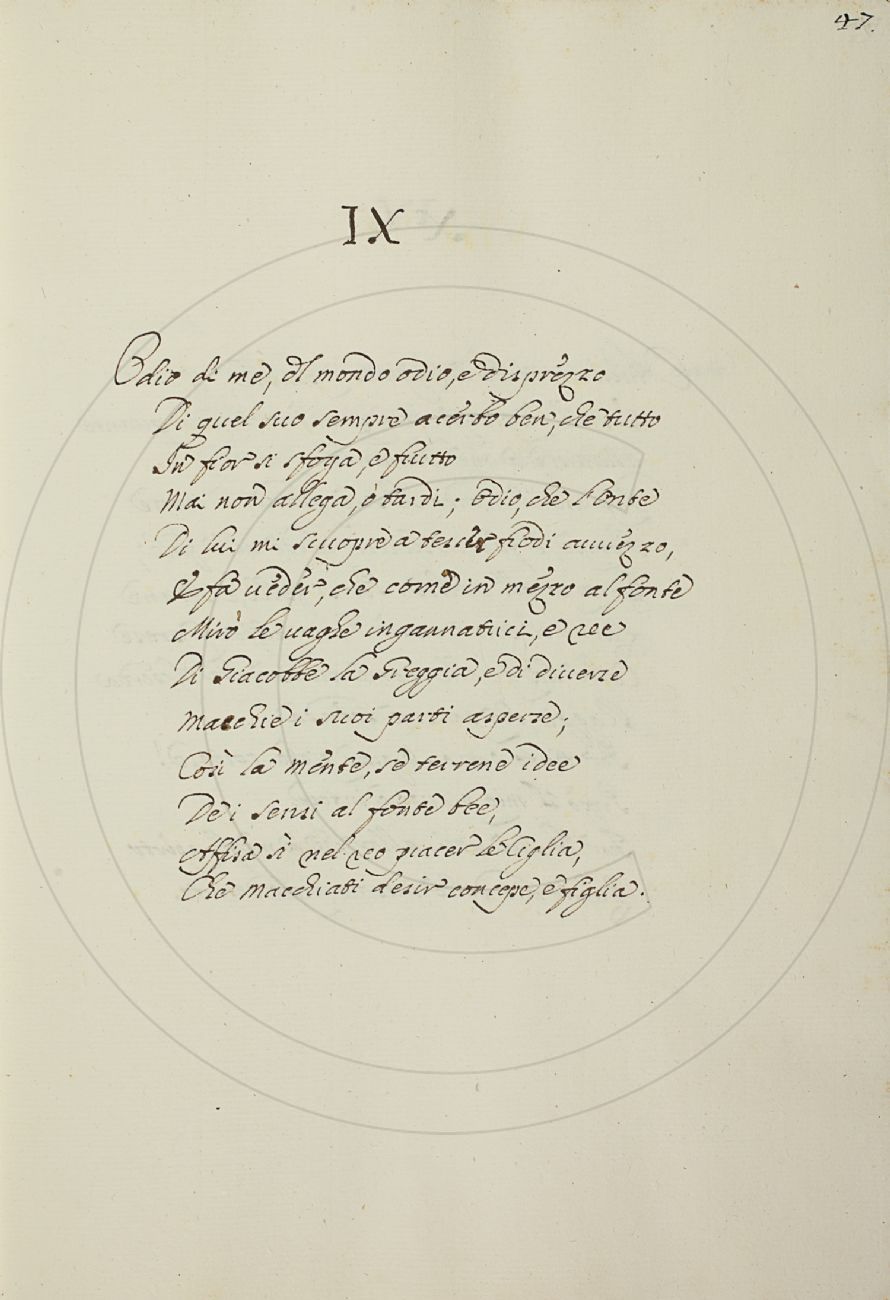 47.
IX
Odio di me, del mondo odio, e disprezzo
Di quel suo sempre acerbo ben, che tutto
In fior si sfoga, e frutto
Mai non allega, o tardi; Odio, che l'onte
Di lui mi scuopre a tesser frodi avvezzo,
E fa veder, che come in mezzo al fonte
Mirò le vaghe ingannatrici, e ree
Di Giacobbe la Greggia, e di diverse
Macchie i suoi parti asperse;
Così la mente, se terrene idee
De i sensi al fonte bee,
Affisa sì nel reo piacer le Ciglia,
Che macchiati desir concepe, e figlia.